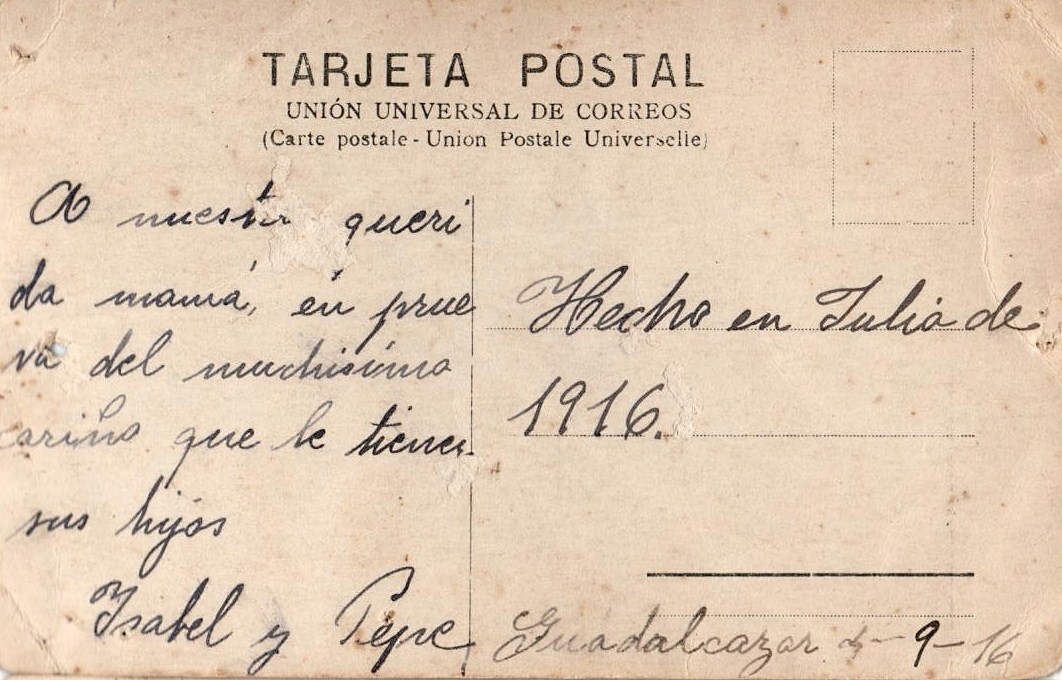 TARJETA POSTAL
UNIÓN UNIVERSAL DE CORREOS
(Carte postale - Union Postale Universelle)
A nuestr queri
da mamá, en prue
va del muchisimo
cariño que le tienen
sus hijos
Isabel y Pepe
Hecho en Julio de
1916.
Guadalcazar -9-16